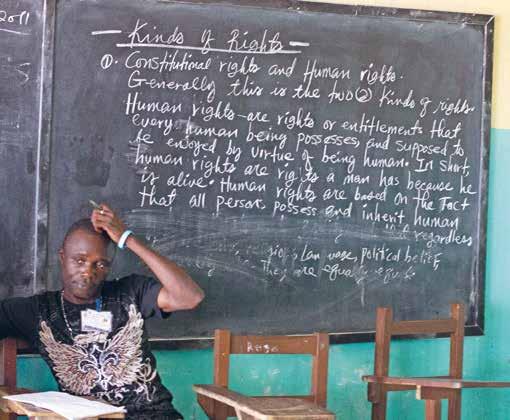 2011
- Kinds of Rights -
①. Constitutional rights and Human rights.
Generally this is the two (2) Kinds of rights.
Human rights - are rights or entitlements that
every human being possesses, and supposed to
be enjoyed by virtue of being human. In Short,
human rights are rights a man has because he
is alive. Human rights are based on the Fact
that all persons possess and inherit human
regardless
political belief,
They are equal